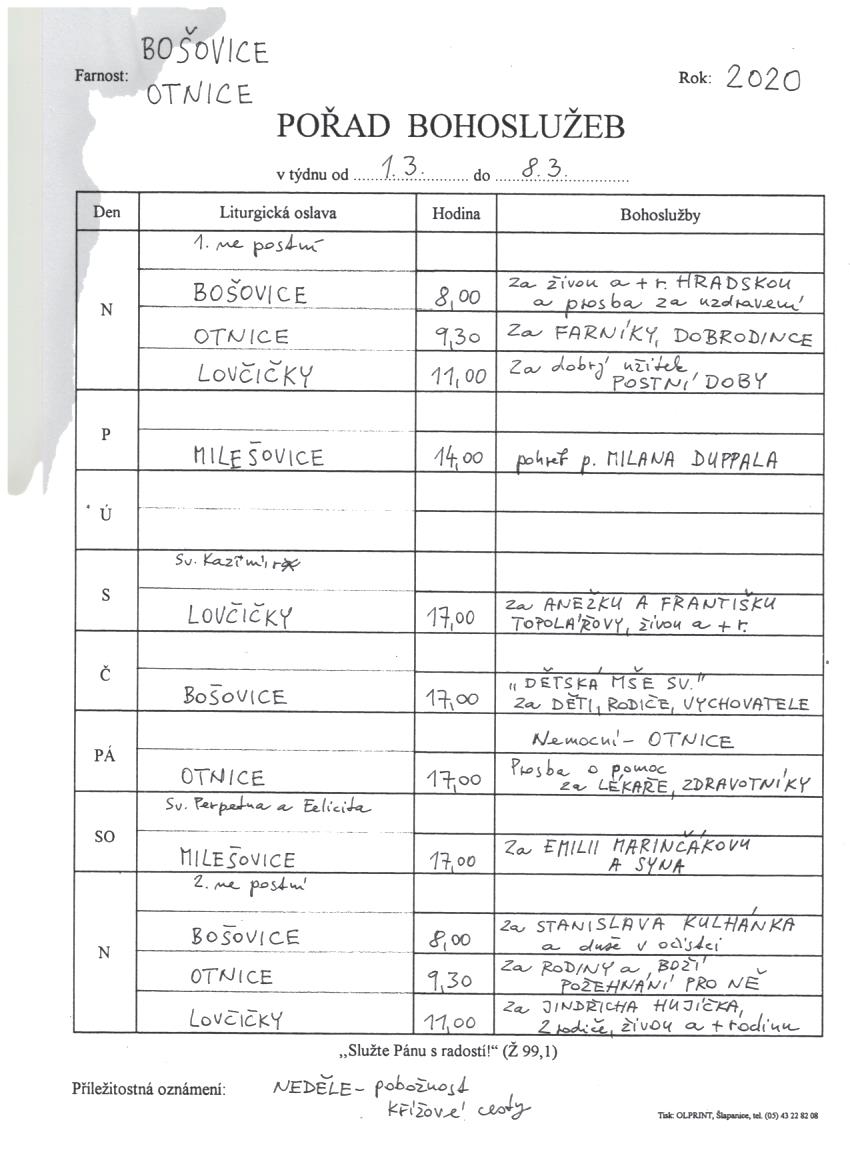 BOŠOVICE
Farnost: OTNICE Rok: 2020
POŘAD BOHOSLUŽEB
v týdnu od 1.3. do 8.3.
Den Liturgická oslava Hodina Bohoslužby
N
1. ne postní
BOŠOVICE 8,00 za živou a + r. HRADSKOU
a prosba za uzdravení
OTNICE 9,30 Za FARNÍKY, DOBRODINCE
LOVČIČKY 11,00 Za dobrý užitek
POSTNÍ DOBY
P
MILEŠOVICE 14,00 pohřeb p. MILANA DUPPALA
Ú
S
Sv. Kazimír
LOVČIČKY 17,00 za ANEŽKU A FRANTIŠKU
TOPOLÁŘOVY, živou a + r.
Č
BOŠOVICE 17,00 „DĚTSKÁ MŠE SV."
za DĚTI, RODIČE, VYCHOVATELE
PÁ
Nemocní – OTNICE
OTNICE 17,00 Prosba o pomoc
za LÉKAŘE, ZDRAVOTNÍKY
SO
Sv. Perpetua a Felicita
MILEŠOVICE 17,00 Za EMILII MARINČÁKOVU
A SYNA
N
2. ne postní
BOŠOVICE 8,00 za STANISLAVA KULHÁNKA
a duše v očistci
OTNICE 9,30 Za RODINY a BOŽÍ
POŽEHNÁNÍ PRO NĚ
LOVČIČKY 11,00 za JINDŘICHA HUJÍČKA,
2 rodiče, živou a + rodinu
„Služte Pánu s radostí!“ (Ž 99,1)
Příležitostná oznámení: NEDĚLE – pobožnost
křížové cesty
Tisk: OLPRINT, Šlapanice, tel. (05) 43 22 82 08